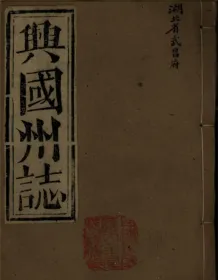 興國州誌
湖北省武昌府